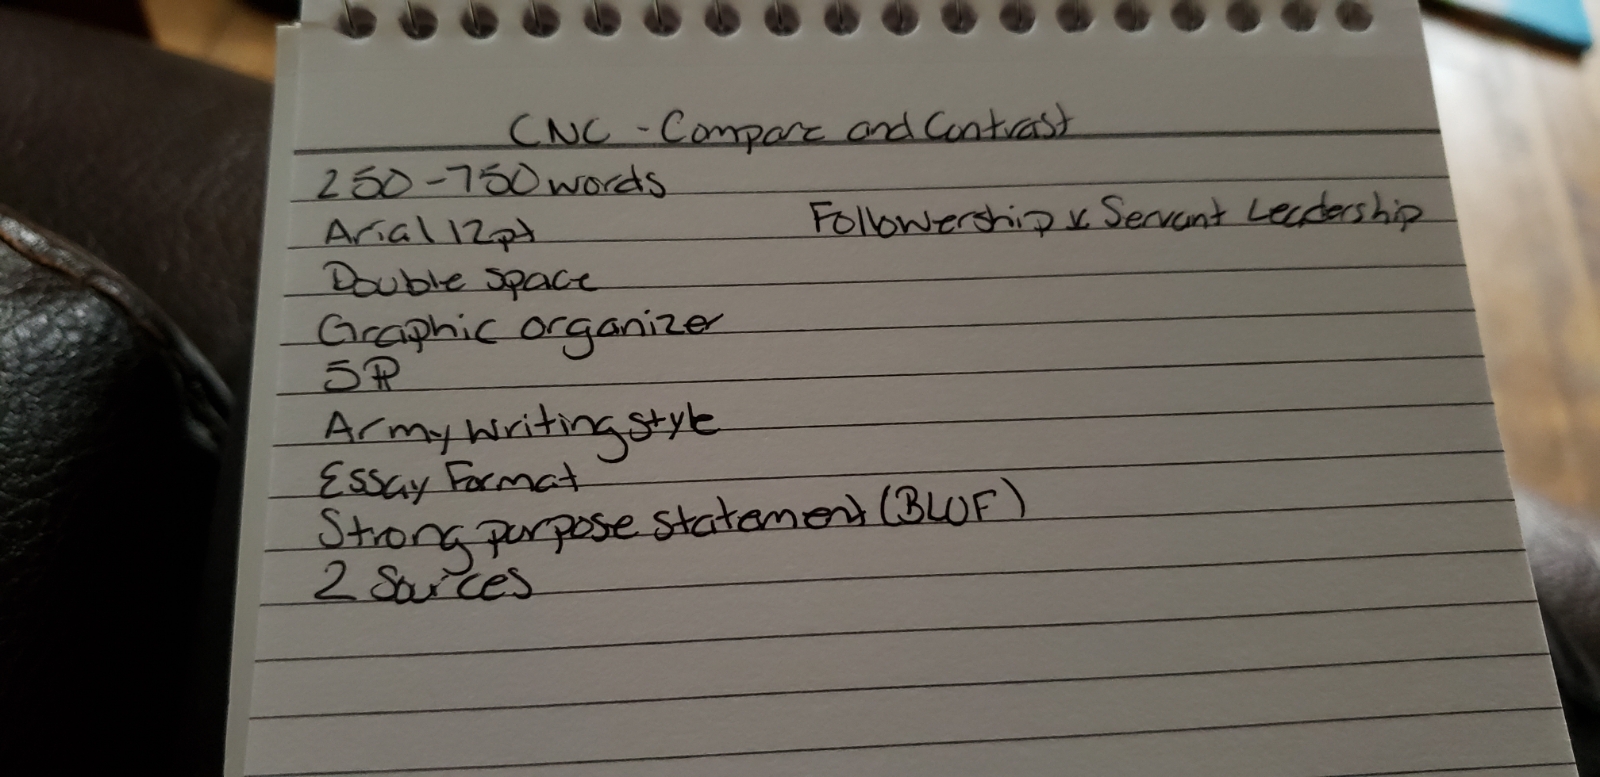 CNC - Compare and Contrast
250-750 words
Arial 12pt
Followership v. Servant Leadership
Double space
Graphic organizer
5P
Army writing style
Essay Format
Strong purpose statement (BLUF)
2 Sources